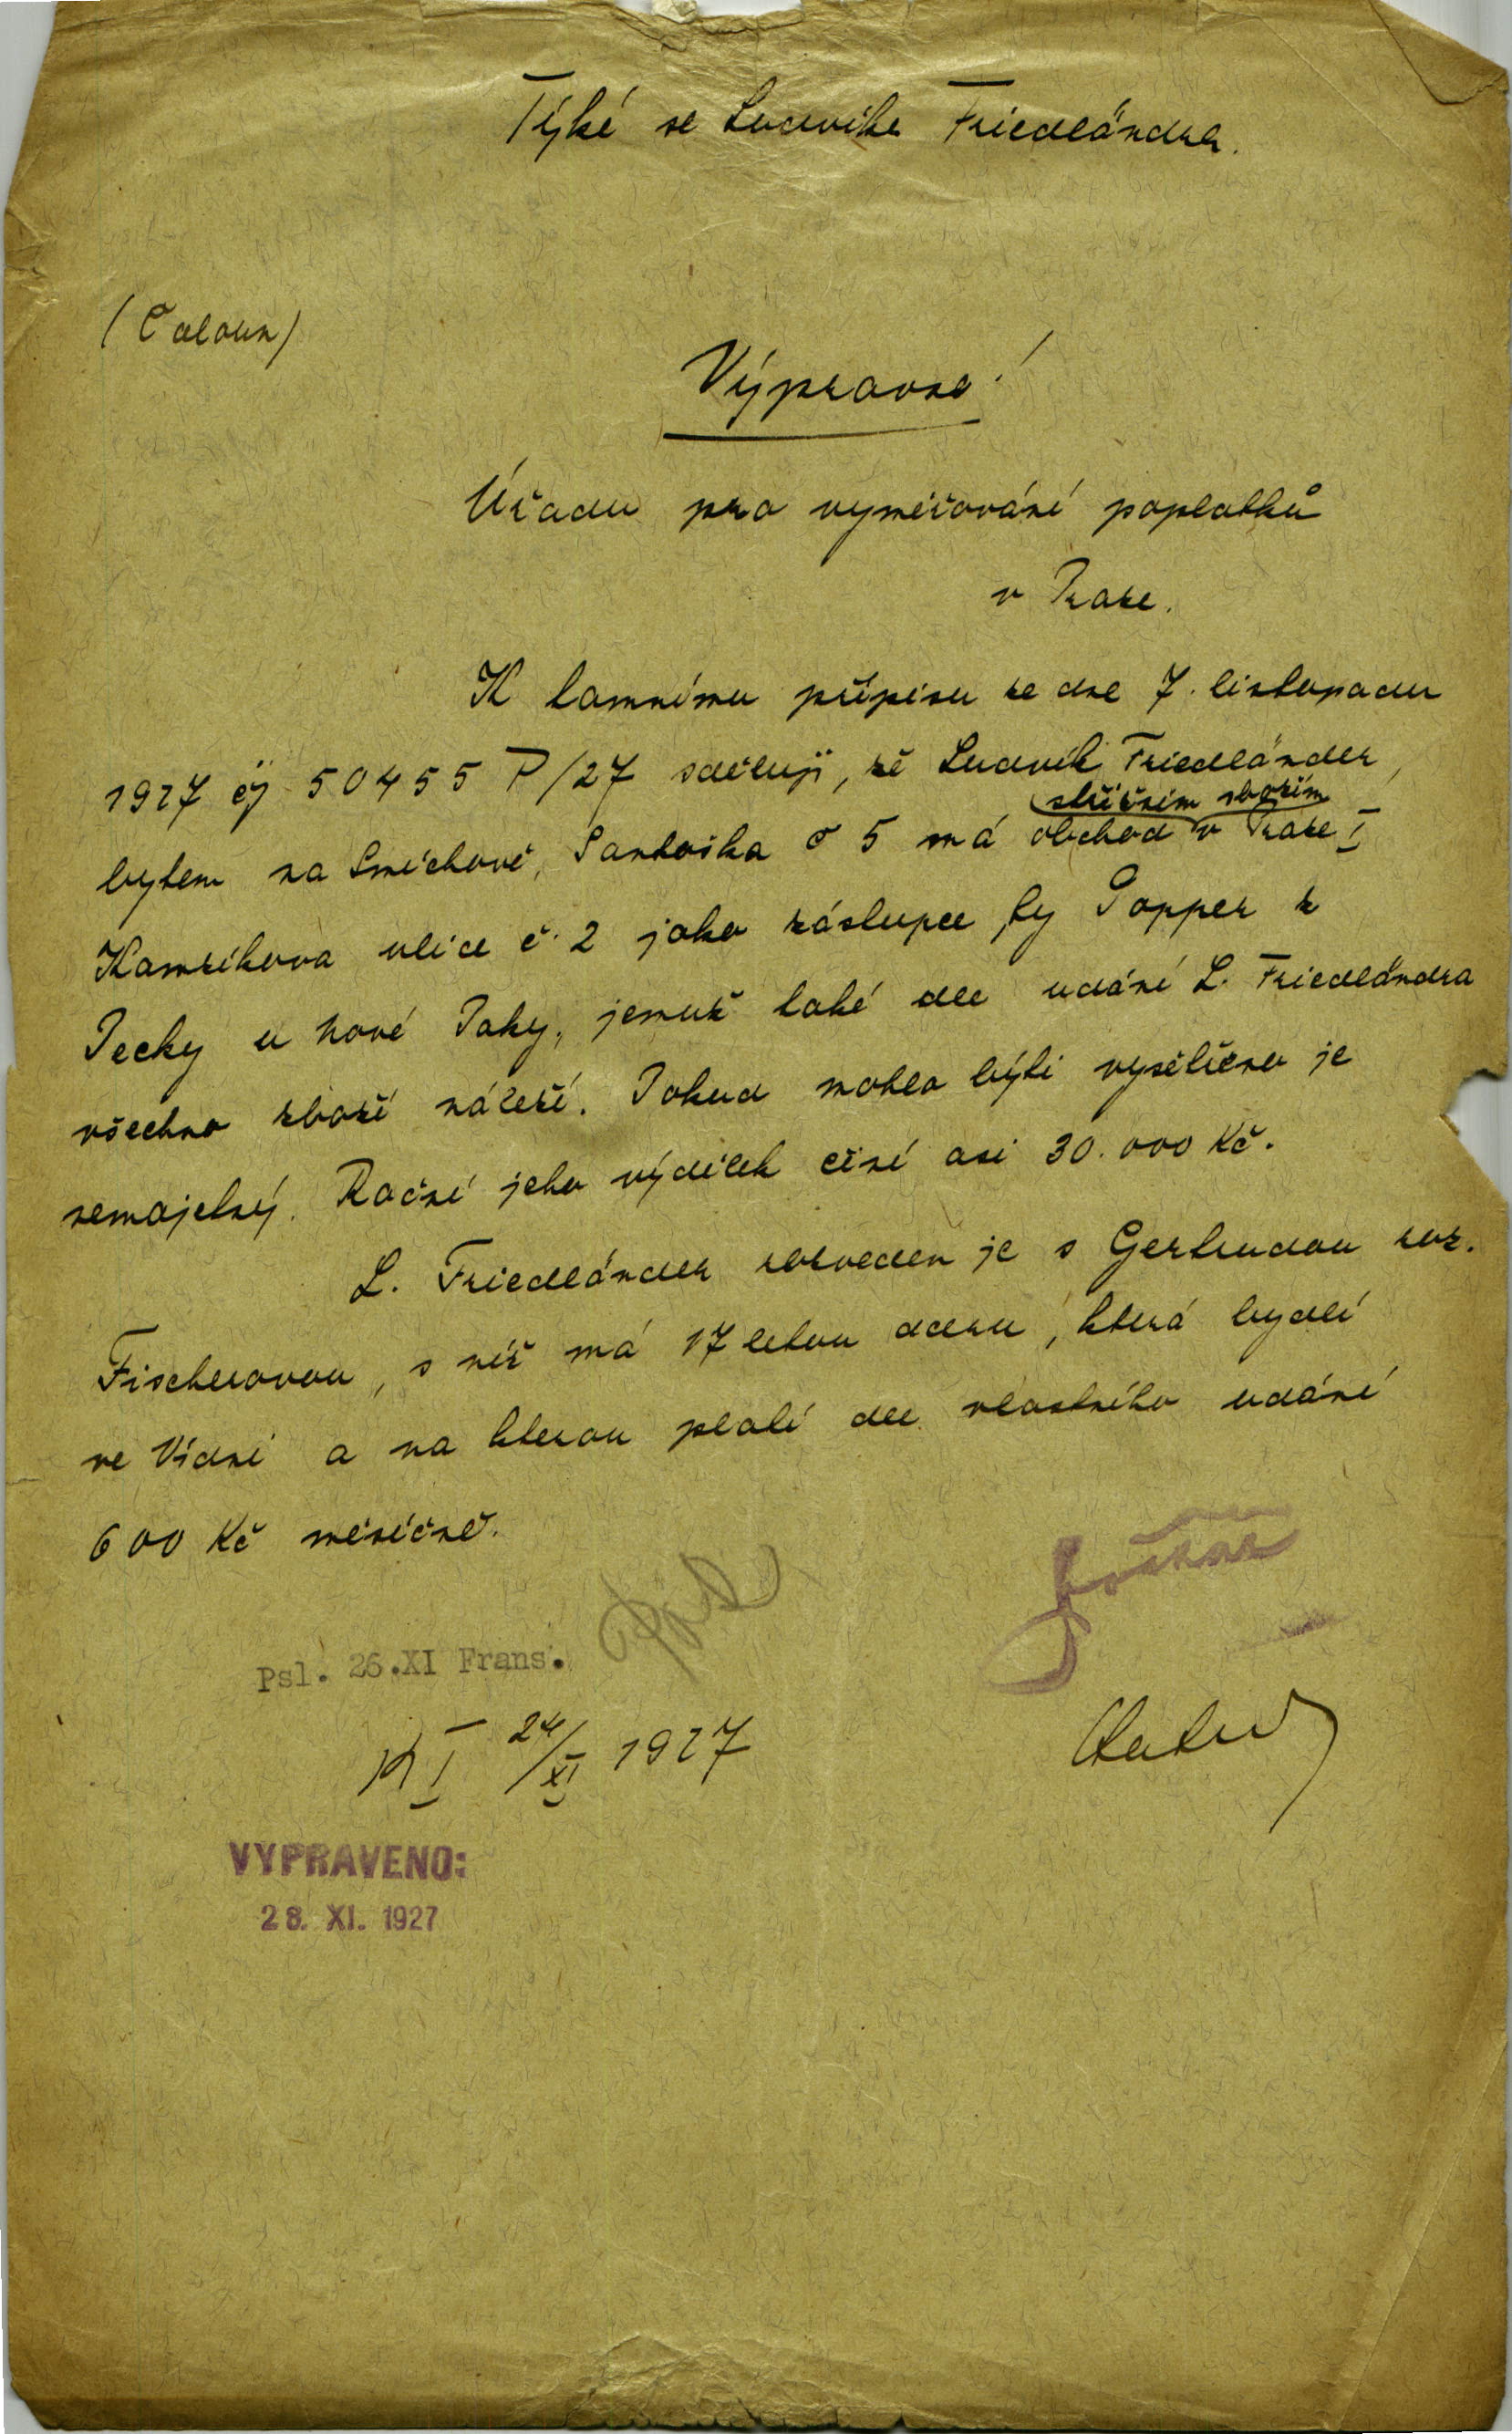 Týká se Ludvíka Friedländra.
(Caloun)
Vypravno!
Úřadu pro vyměřování poplatků
v Praze.
K tamnímu přípisu ze dne 7. listopadu
1927 čj 50455 P/27 sděluji, že Ludvík Friedländer,
střižním zbožím
bytem na Smíchově, Santoška č 5 má obchod v Praze I
Kamzíkova ulice č. 2 jako zástupce fy Popper z
Pecky u Nové Paky, jemuž také dle udání L. Friedländra
všechno zboží náleží. Pokud mohlo býti vyšetřeno je
nemajetný. Roční jeho výdělek činí asi 30.000 Kč.
L. Friedländer rozveden je s Gertrudou roz.
Fischerovou, s níž má 17 letou dceru, která bydlí
ve Vídni a na kterou platí dle vlastního udání
600 Kč měsíčně.
Psl. 26.XI Frans.
24/XI 1927
VYPRAVENO:
28. XI. 1927